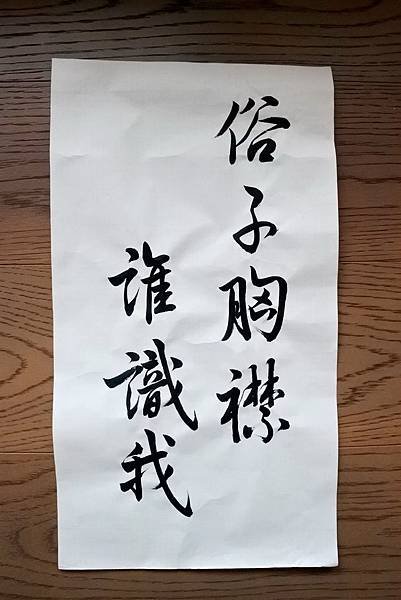 俗子胸襟
誰識我